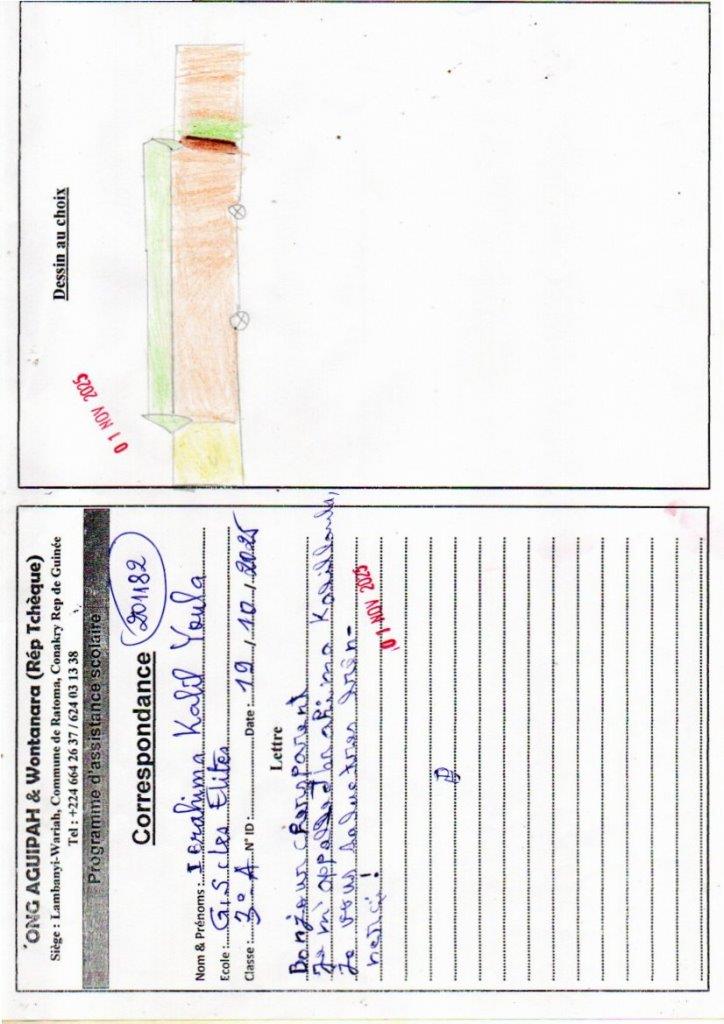 ONG AGUIPAH & Wontanara (Rép Tchèque)
Siège : Lambanyi-Wariah, Commune de Ratoma, Conakry Rep de Guinée
Tel : +224 664 26 37 / 624 03 13 38
Programme d'assistance scolaire
Correspondance
201182
Nom & Prénoms : Ibrahima Kalil Youla
Ecole : G.S. les Elites
Classe : 3° A N° ID : Date : 19 / 10 / 2025
Lettre
Bonjour cher parent
Je m'appelle Ibrahima
Je vous salue tres bien
merci !
01 NOV 2025
Dessin au choix
01 NOV 2025